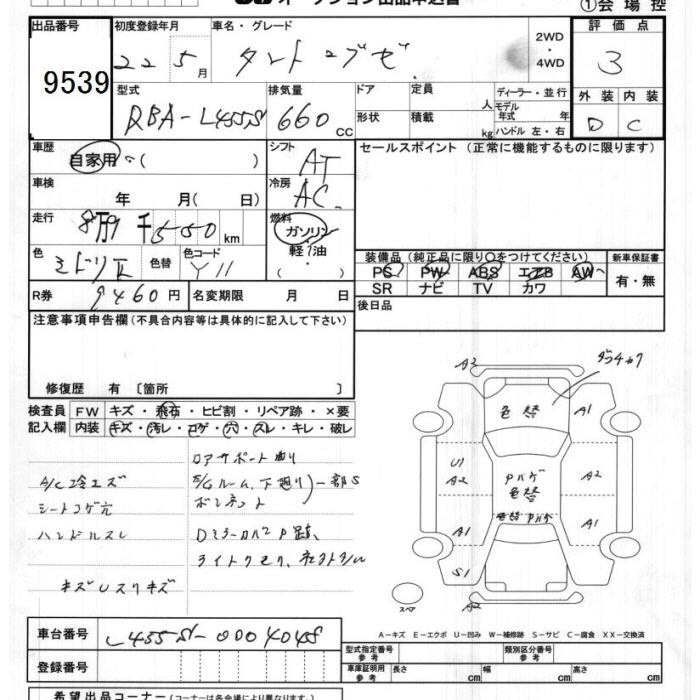 オークション出品申込書 ①会場控
出品番号 9539
初度登録年月 22 5月
車名・グレード タント エグゼ
2WD・4WD
評価点 3
外装 D 内装 C
型式 DBA-L455S
排気量 660 CC
ドア 形状
定員 人
積載 kg
ディーラー・並行
モデル年式 年
ハンドル 左・右
車歴 自家用・( )
シフト AT
セールスポイント (正常に機能するものに限ります)
車検 年 月( 日)
冷房 AC
走行 8万9千550km
燃料 ガソリン 軽油
色 ミドリ 色替 色コード Y11
装備品 (純正品に限り○をつけてください)
PS PW ABS エアB AW
SR ナビ TV カワ
新車保証書 有・無
R券 9460円 名変期限 月 日
後日品
注意事項申告欄(不具合内容等は具体的に記入して下さい)
修復歴 有〔箇所 〕
検査員記入欄
FW キズ・飛石・ヒビ割・リペア跡・×要
内装 キズ・汚レ・コゲ・穴・スレ・キレ・破レ
A/C冷エズ
シートコゲ穴
ハンドルスレ
キズUスリキズ
ボンネット
A2
A1
色替
U1
A2
Pハゲ
色替
A2
色替 Pハゲ
A1
A1
S1
A2
スペア
A-キズ E-エクボ U-凹み W-補修跡 S-サビ C-腐食 XX-交換済
車台番号 L455S-0004045
登録番号
型式指定番号 参考
類別区分番号 参考
車庫証明用 参考 長さ cm 幅 cm 高さ cm
希望出品コーナー(コーナーは各会場により異なります)